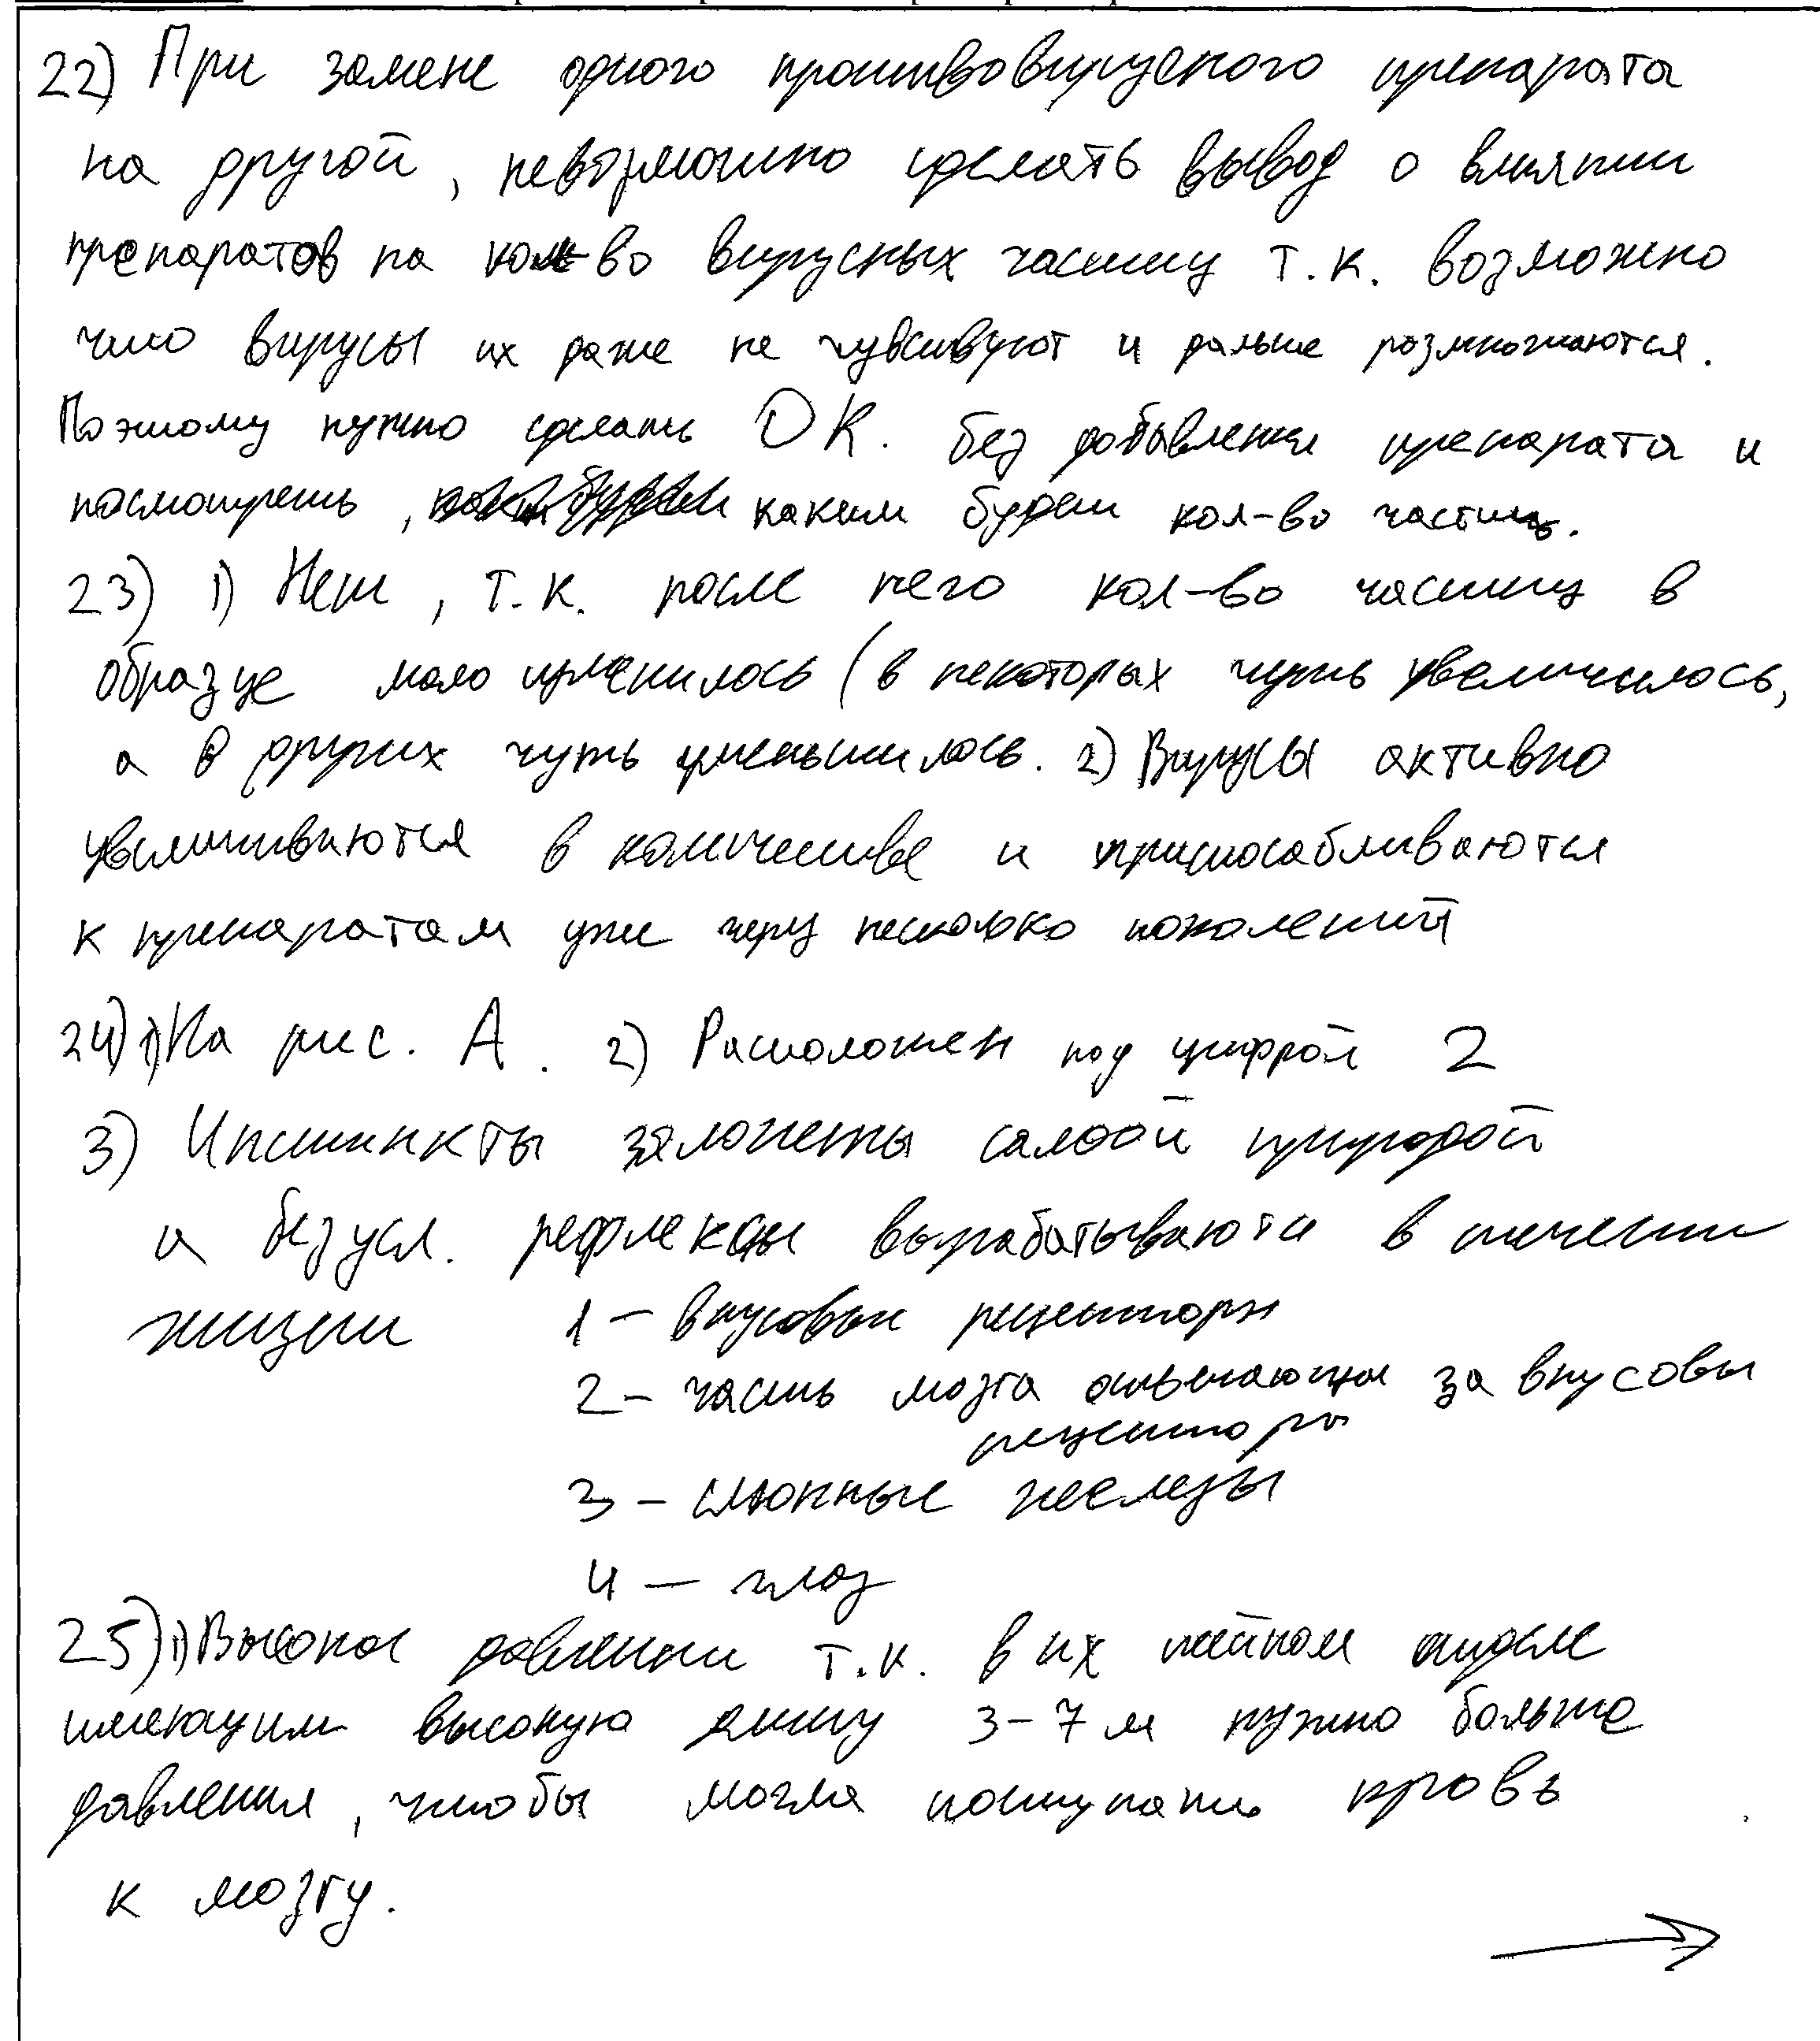 22) При замене одного противовирусного препарата
на другой, невозможно сделать вывод о влиянии
препаратов на кол-во вирусных частиц т.к. возможно
что вирусы их даже не чувсвуют и дальше размножаются.
Поэтому нужно сделать ОК. без добавления препарата и
посмотреть, каким будет кол-во частиц.
23) 1) Нет, т.к. после него кол-во частиц в
образце мало изменилось (в некоторых чуть увеличилось,
а в других чуть уменьшилось. 2) Вирусы активно
увеличиваются в количестве и приспосабливаются
к препаратам уже через несколько поколений
24) 1) На рис. А. 2) Расположен под цифрой 2
3) Инстинкты заложены самой природой
а безусл. рефлексы вырабатываются в течении
жизни 1 - вкусовые рецепторы
2 - часть мозга отвечающая за вкусовы
рецепторы
3 - слюнные железы
4 - глаз
25) 1) Высокое давлении т.к. в их шейном отделе
имеющим высокую длину 3-7 м нужно больше
давления, чтобы могла поступать кровь
к мозгу.